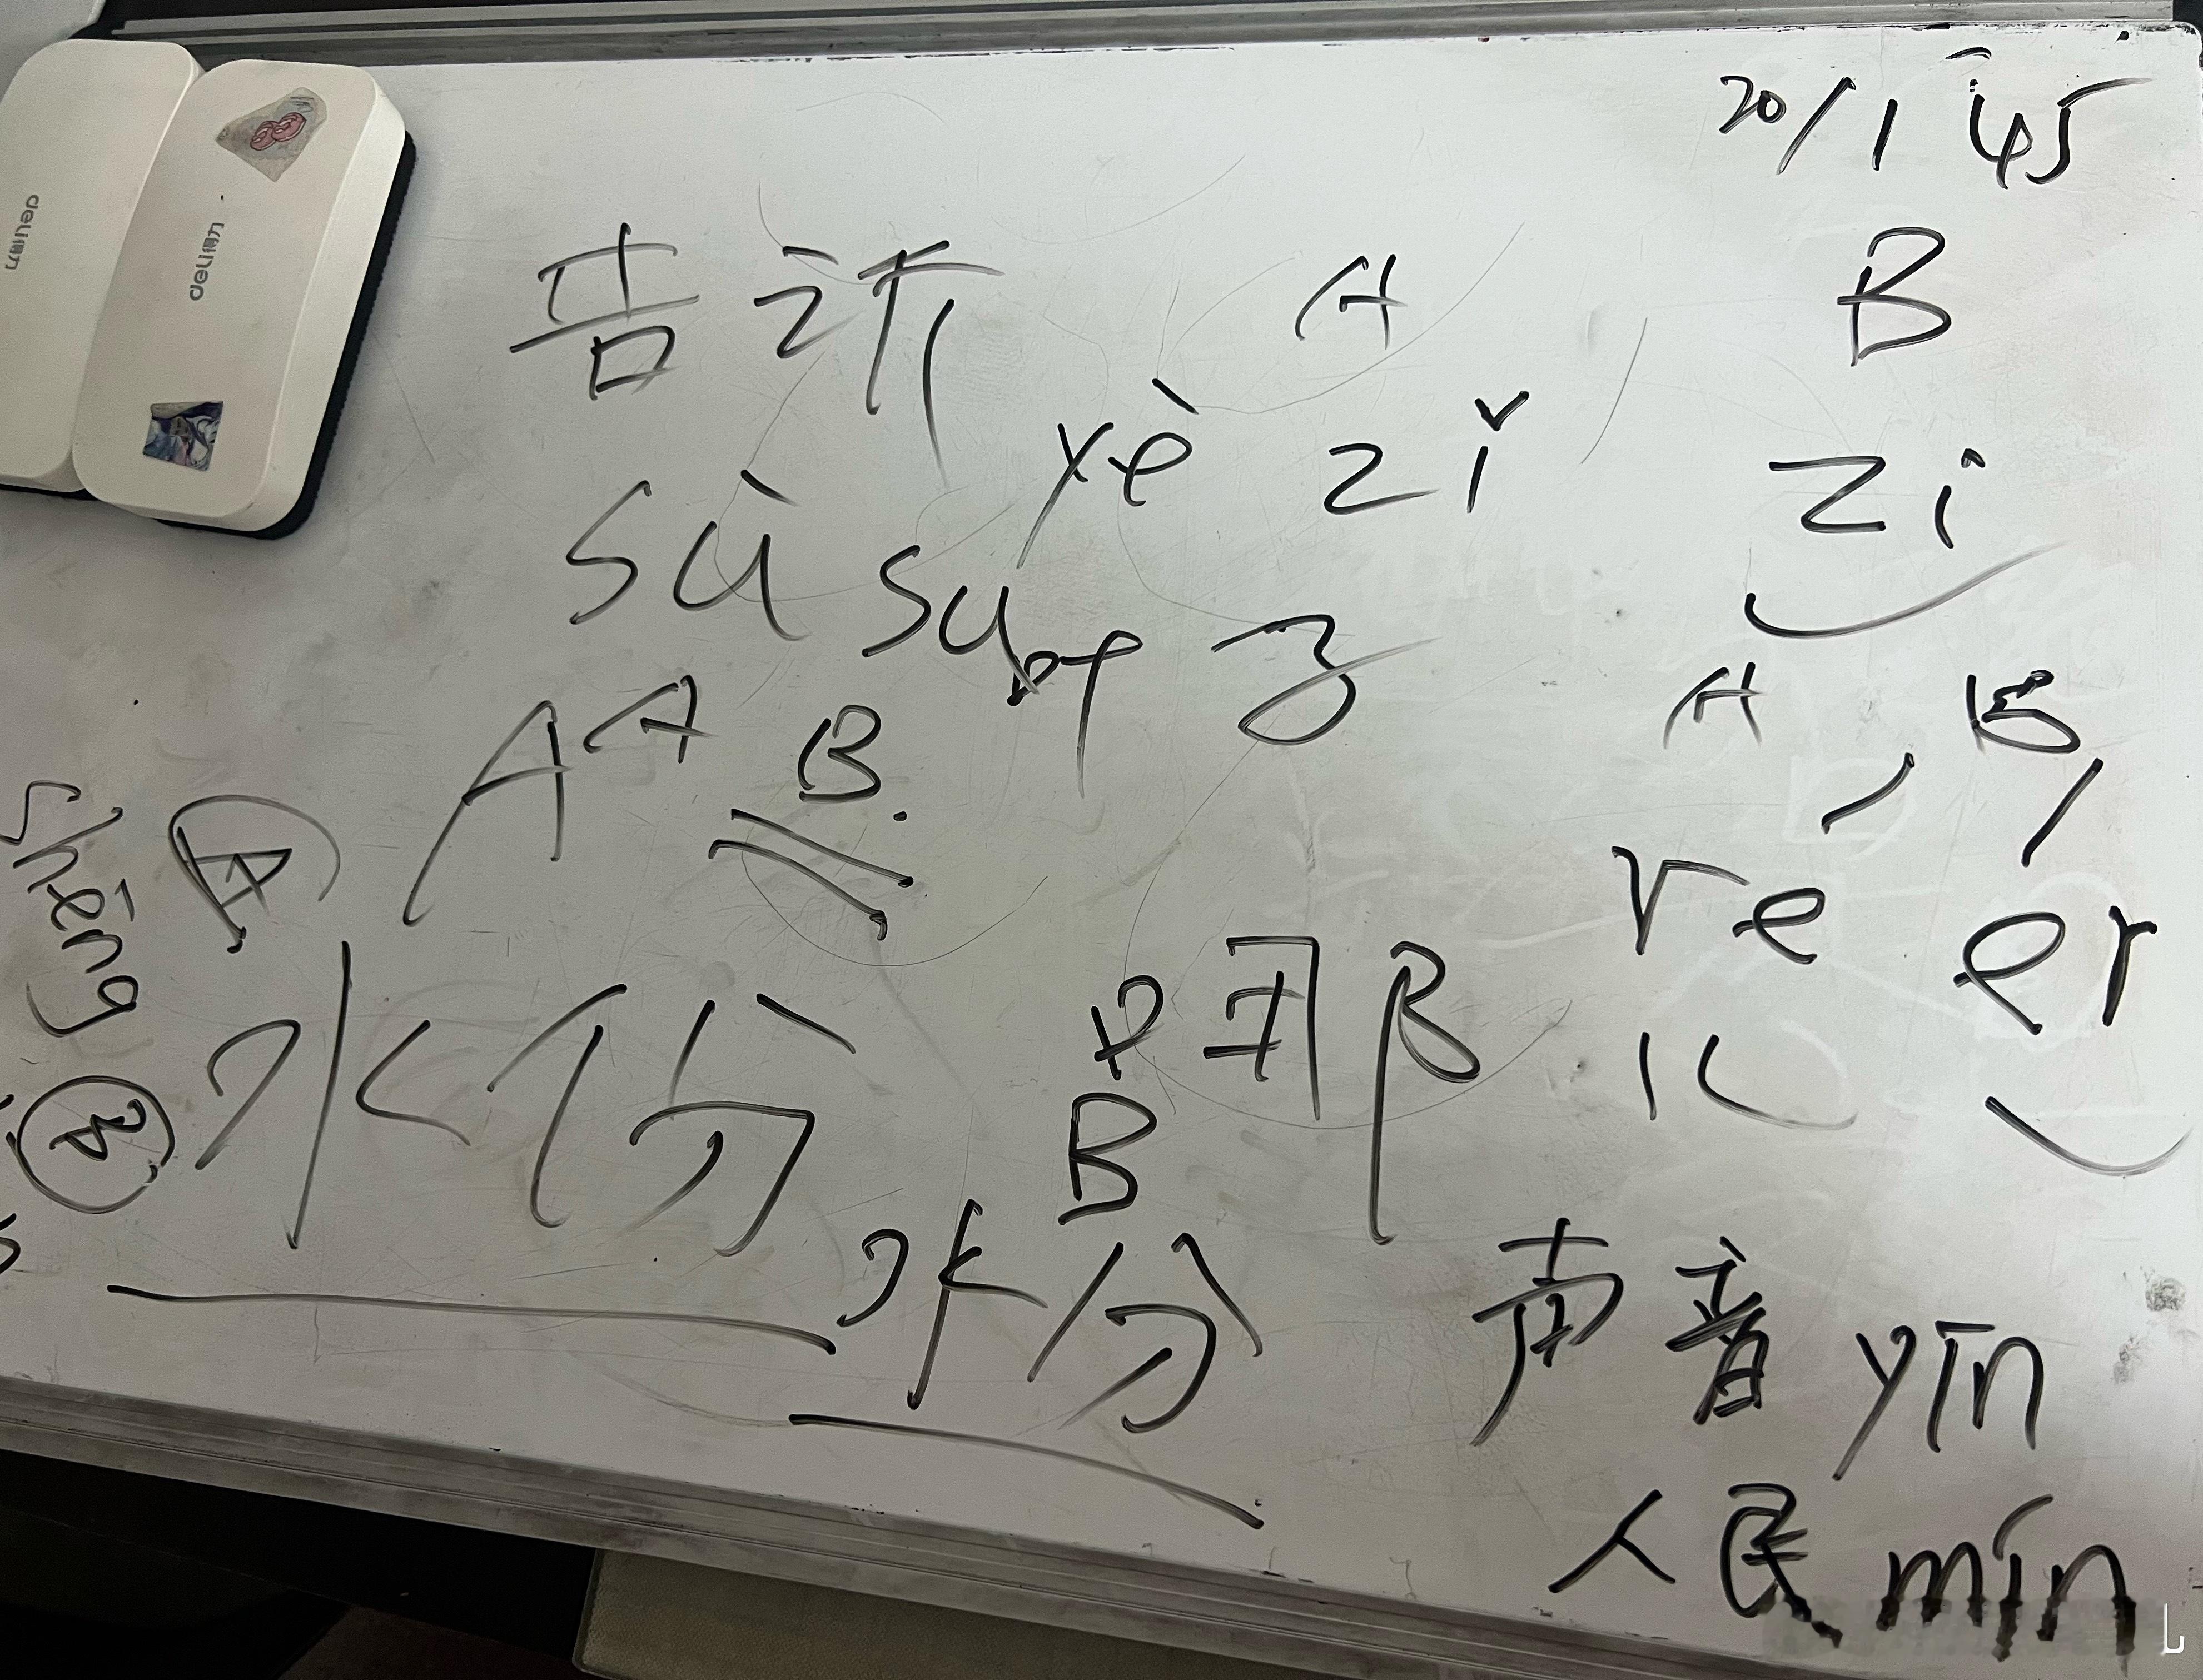 20/1 45
告诉 A B
yè zǐ zi
sù su
叶子
A A B A B
shēng A ré er
水分 那 儿
B
水分
声音 yīn
人民 mín
deli得力
deli得力